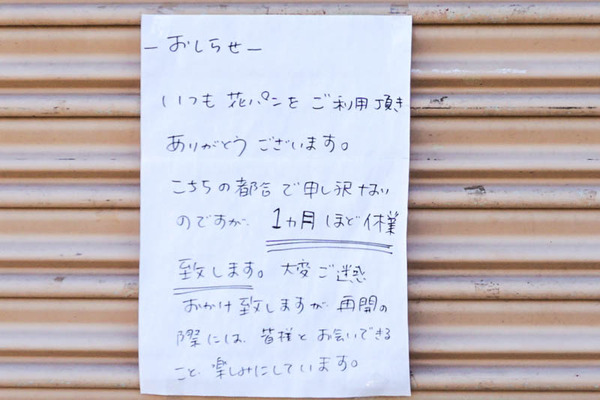 －おしらせ－
いつも 花パンを ご利用頂き
ありがとう ございます。
こちらの都合で申し訳ない
のですが、1ヵ月ほど休業
致します。大変ご迷惑
おかけ致しますが 再開の
際には、皆様とお会いできる
こと、楽しみにしています。